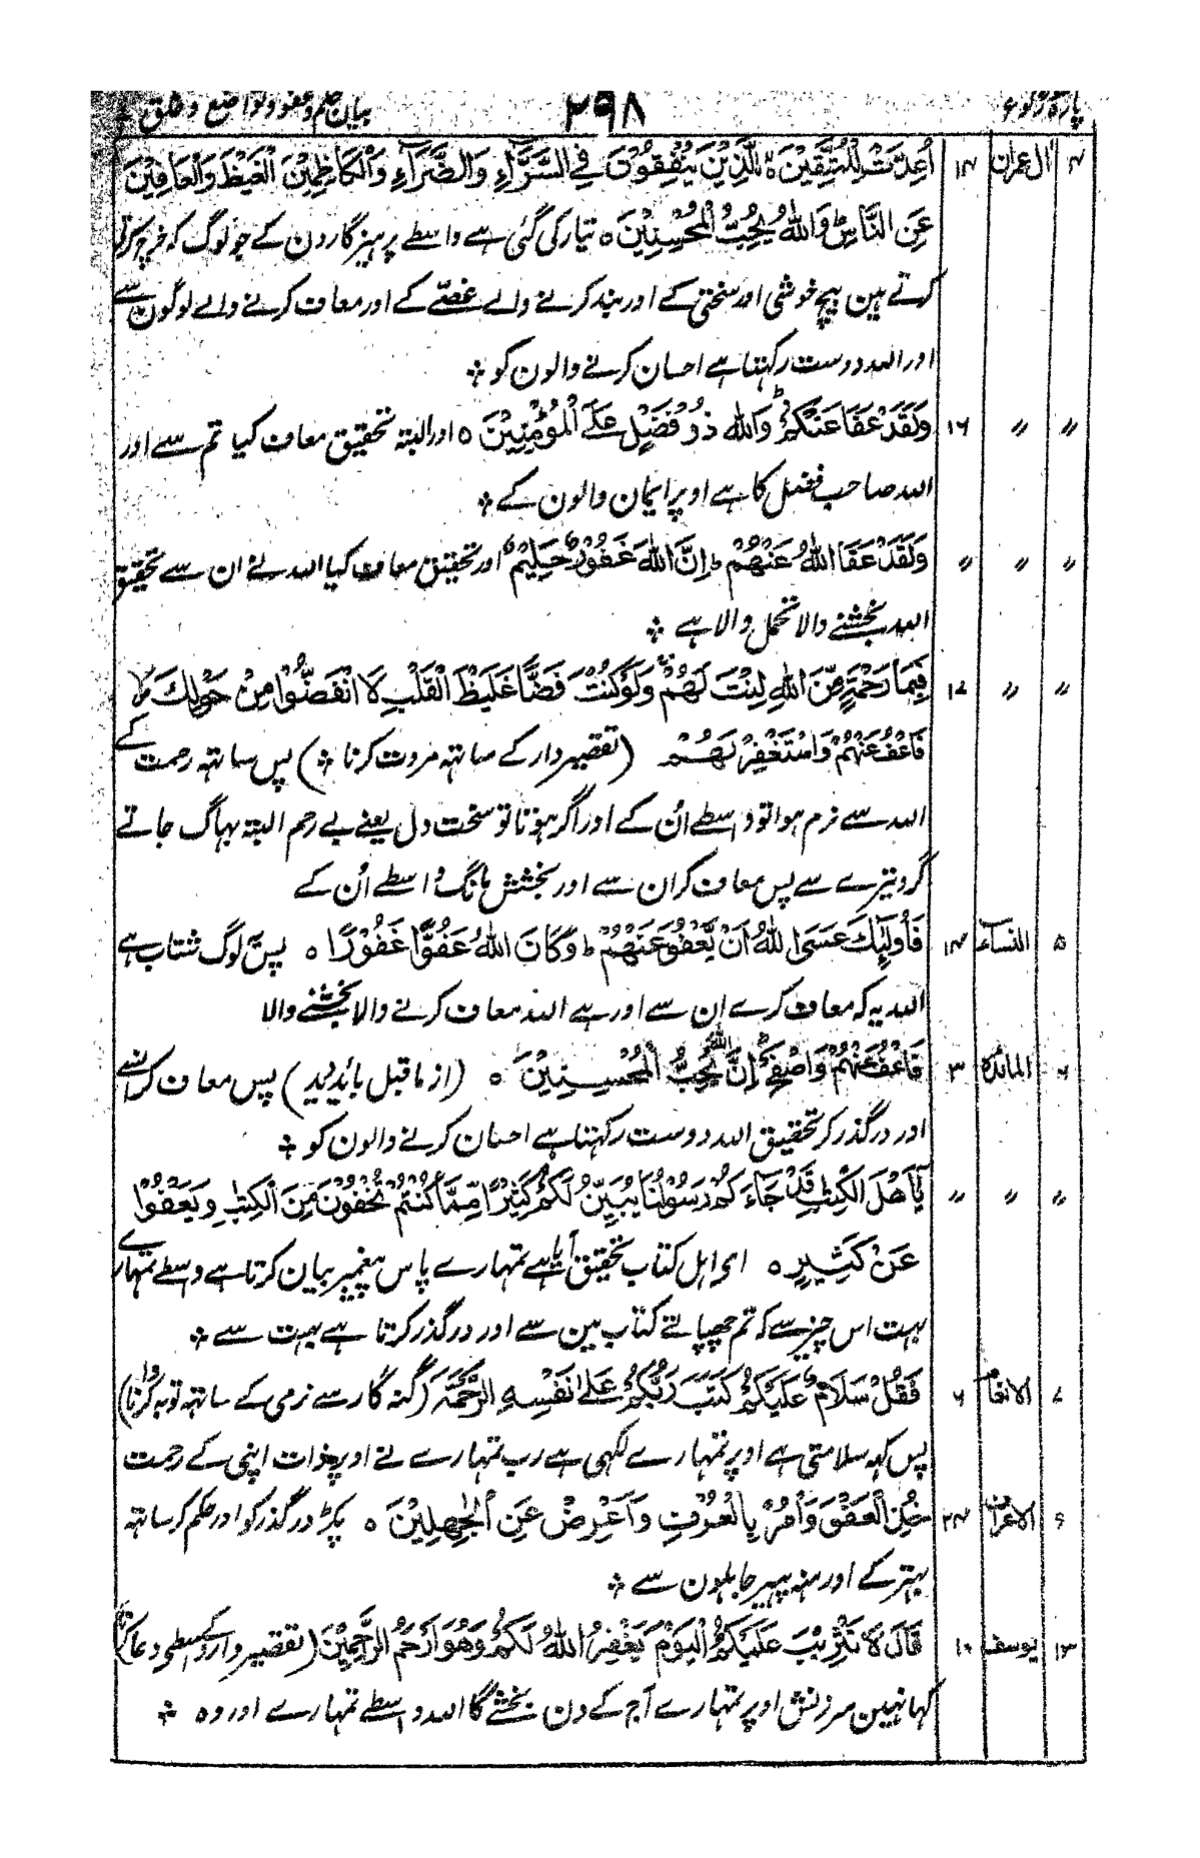 پارہ رکوع ۲۹۸ بیان حلم و عفو و تواضع و خلق
۴ اٰل عمران ۱۴ اُعِدَّتْ لِلْمُتَّقِيْنَ ۵ الَّذِيْنَ يُنْفِقُوْنَ فِي السَّرَّآءِ وَالضَّرَّآءِ وَالْكَاظِمِيْنَ الْغَيْظَ وَالْعَافِيْنَ
عَنِ النَّاسِ ط وَاللّٰهُ يُحِبُّ الْمُحْسِنِيْنَ ۵ تیار کی گئی ہے واسطے پرہیزگارون کے جو لوگ کہ خرچ کرتے
کرتے ہین بیچ خوشی اور سختی کے اور بند کرنے والے غصّے کے اور معاف کرنے والے لوگون سے
اور اللہ دوست رکہتا ہے احسان کرنے والون کو ؞
〃 〃 ۱۶ وَلَقَدْ عَفَا عَنْكُمْ ط وَاللّٰهُ ذُوْ فَضْلٍ عَلَى الْمُؤْمِنِيْنَ ۵ اور البتہ تحقیق معاف کیا تم سے اور
اللہ صاحب فضل کا ہے اوپر ایمان والون کے ؞
〃 〃 〃 وَلَقَدْ عَفَا اللّٰهُ عَنْهُمْ ط اِنَّ اللّٰهَ غَفُوْرٌ حَلِيْمٌ اور تحقیق معاف کیا اللہ نے ان سے تحقیق
اللہ بخشنے والا تحمل والا ہے ؞
〃 〃 ۱۷ فَبِمَا رَحْمَةٍ مِّنَ اللّٰهِ لِنْتَ لَهُمْ وَلَوْ كُنْتَ فَضًّا غَلِيْظَ الْقَلْبِ لَا انْفَضُّوْا مِنْ حَوْلِكَ
فَاعْفُ عَنْهُمْ وَاسْتَغْفِرْ لَهُمْ (تقصیر دار کے ساتہہ مروت کرنا ؞) پس ساتہہ رحمت کے
اللہ سے نرم ہوا تو واسطے اُن کے اور اگر ہوتا تو سخت دل یعنے بے رحم البتہ بہاگ جاتے
گرد تیرے سے پس معاف کر ان سے اور بخشش مانگ واسطے اُن کے
۵ النساء ۱۴ فَاُولٰٓئِكَ عَسَى اللّٰهُ اَنْ يَّعْفُوَ عَنْهُمْ ط وَكَانَ اللّٰهُ عَفُوًّا غَفُوْرًا ۵ پس یہ لوگ شتاب ہے
اللہ یہ کہ معاف کرے ان سے اور ہے اللہ معاف کرنے والا بخشنے والا
۶ المائدہ ۳ فَاعْفُ عَنْهُمْ وَاصْفَحْ ط اِنَّ اللّٰهَ يُحِبُّ الْمُحْسِنِيْنَ ۵ (از ماقبل بائد دید) پس معاف کر انسے
اور درگذر کر تحقیق اللہ دوست رکہتا ہے احسان کرنے والون کو ؞
〃 〃 〃 يٰٓاَهْلَ الْكِتٰبِ قَدْ جَآءَ كُمْ رَسُوْلُنَا يُبَيِّنُ لَكُمْ كَثِيْرًا مِّمَّا كُنْتُمْ تُخْفُوْنَ مِنَ الْكِتٰبِ وَيَعْفُوْا
عَنْ كَثِيْرٍ ۵ ای اہل کتاب تحقیق آیا ہے تمہارے پاس پیغمبر بیان کرتا ہے واسطے تمہارے
بہت اس چیز سے کہ تم چھپاتے کتاب مین سے اور درگذر کرتا ہے بہت سے ؞
۷ الانعام ۶ فَقُلْ سَلَامٌ عَلَيْكُمْ كَتَبَ رَبُّكُمْ عَلٰى نَفْسِهِ الرَّحْمَةَ (گنہ گار سے نرمی کے ساتہہ توبہ کروانا)
پس کہہ سلامتی ہے اوپر تمہارے لکہی ہے رب تمہارے نے اوپر ذات اپنی کے رحمت
۹ الاعراف ۲۴ خُذِ الْعَفْوَ وَأْمُرْ بِالْعُرْفِ وَاَعْرِضْ عَنِ الْجٰهِلِيْنَ ۵ پکڑ درگذر کو اور حکم کر ساتہہ
بہتر کے اور منہ پہیر جاہلون سے ؞
۱۳ یوسف ۱۰ قَالَ لَا تَثْرِيْبَ عَلَيْكُمُ الْيَوْمَ يَغْفِرُ اللّٰهُ لَكُمْ وَهُوَ اَرْحَمُ الرّٰحِمِيْنَ (تقصیر وار کے واسطی دعا کرنا)
کہا نہین سرزنش اوپر تمہارے آج کے دن بخشے گا اللہ واسطے تمہارے اور وہ ؞